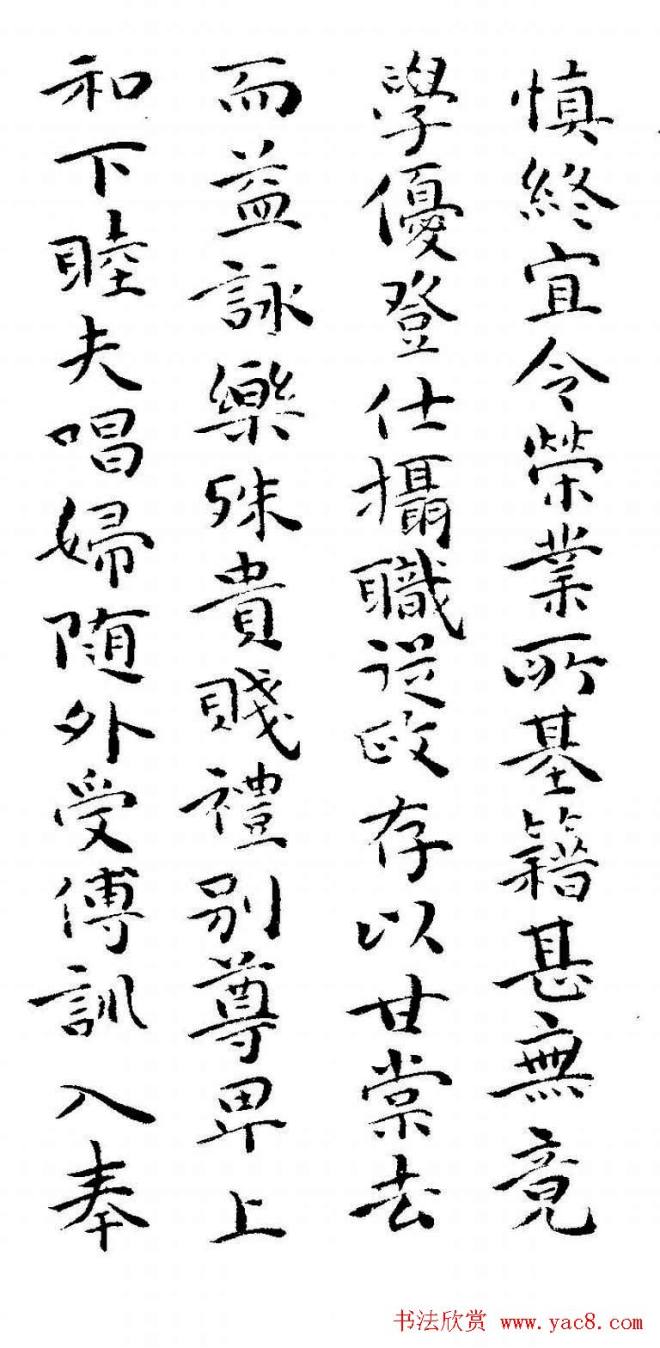 慎終宜令榮業所基籍甚無竟
學優登仕攝職從政存以甘棠去
而益詠樂殊貴賤禮別尊卑上
和下睦夫唱婦随外受傅訓入奉
书法欣赏 www.yac8.com